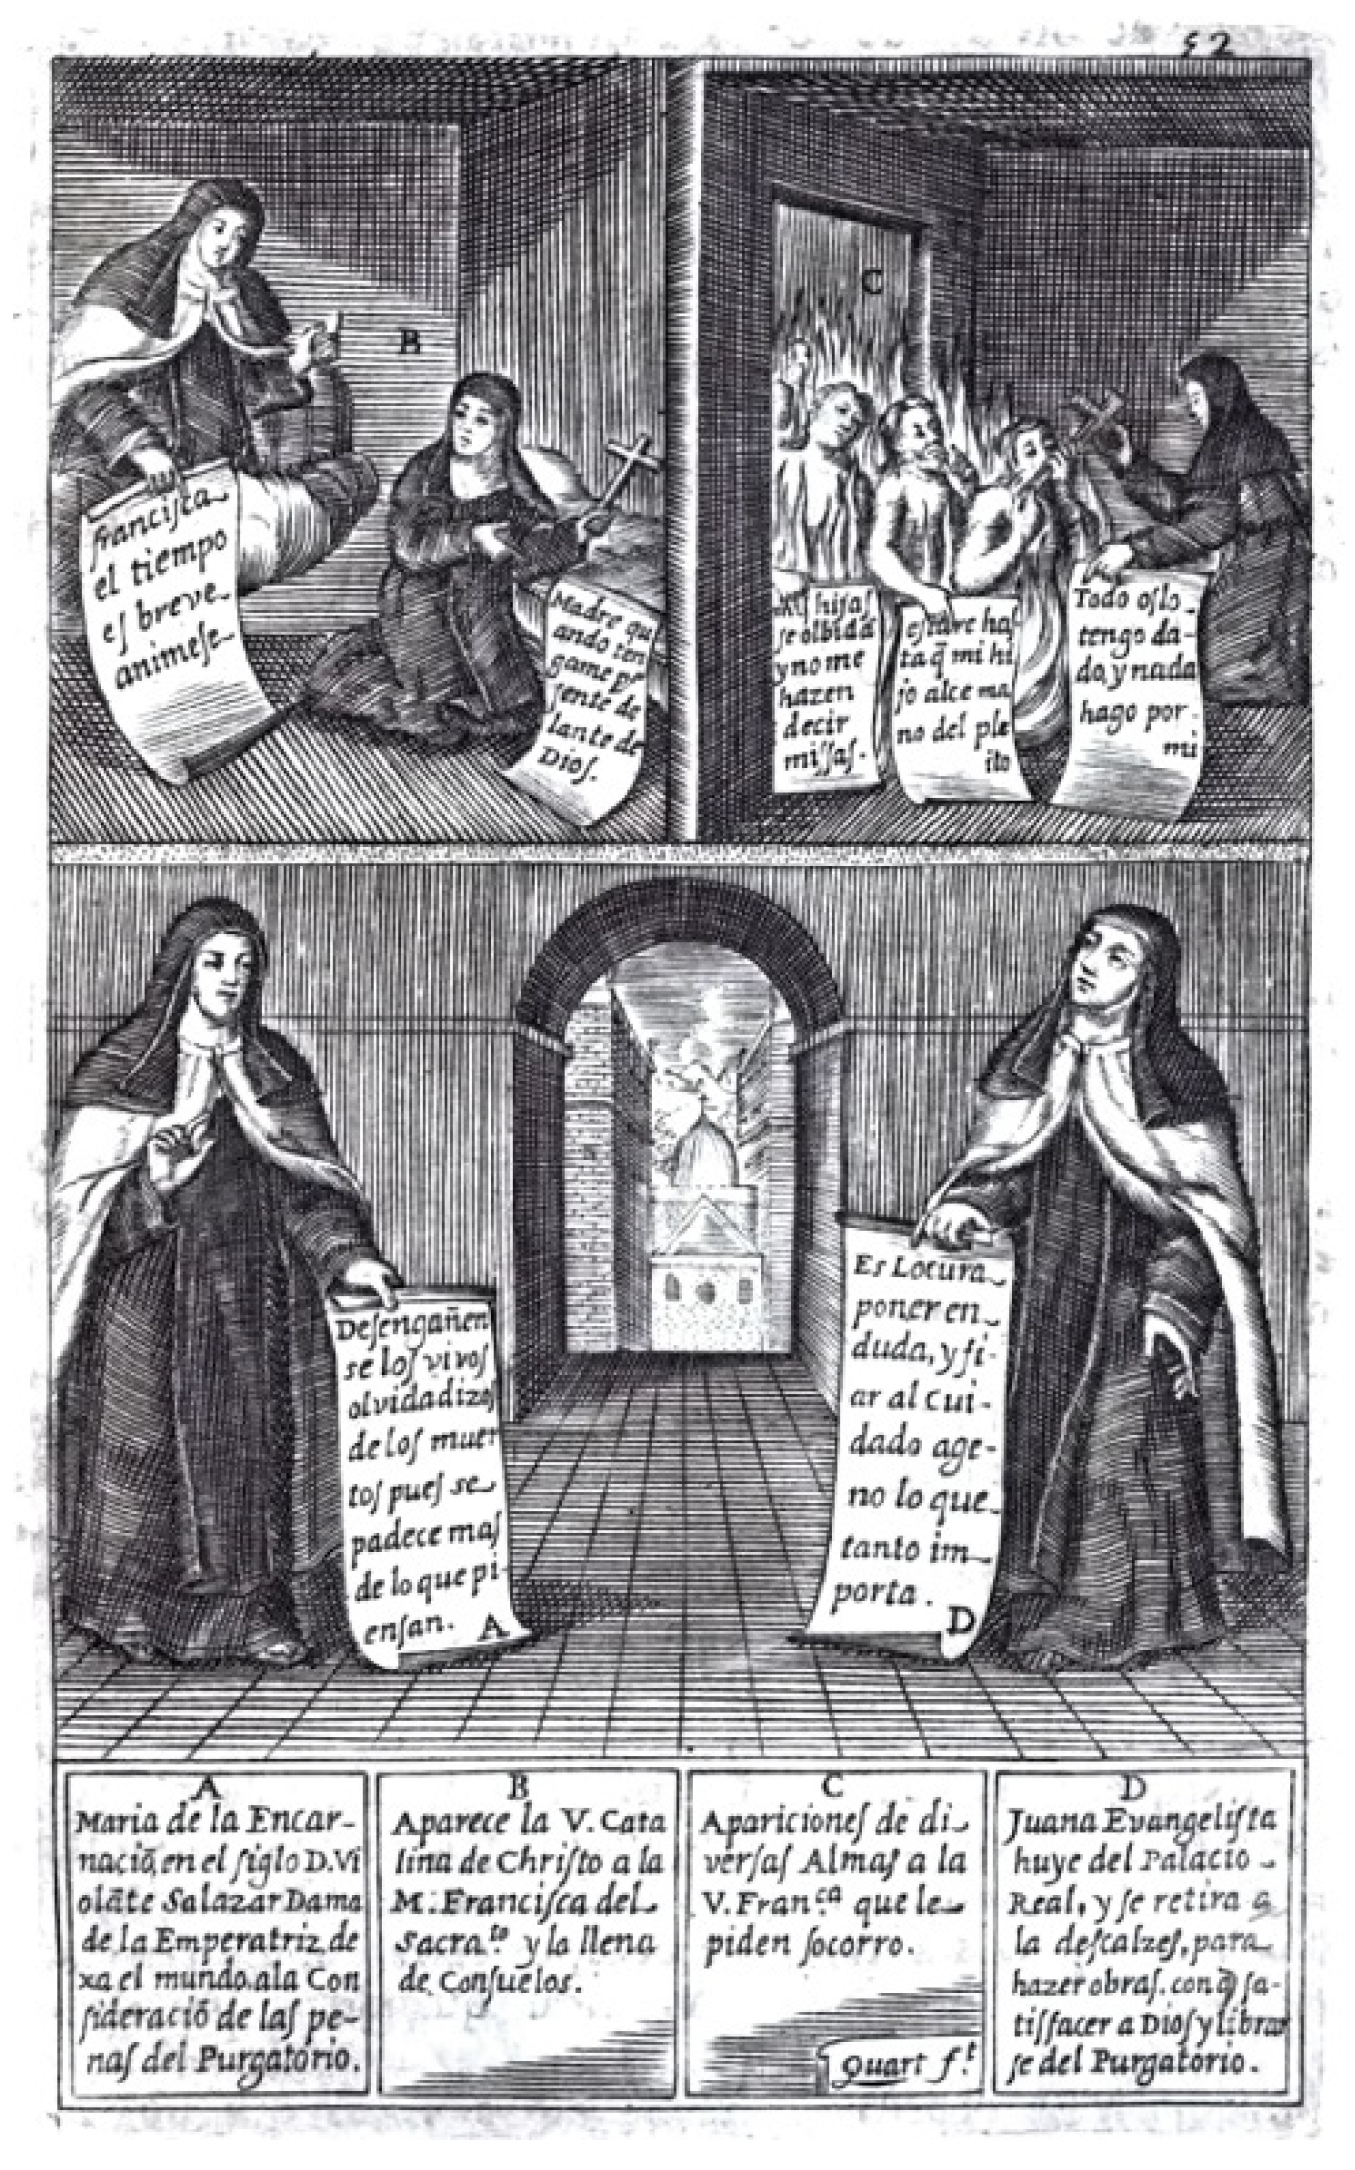 52
B
francisca
el tiempo
es breve
animese
Madre qu
ando ten
game pre
sente de
lante de
Dios.
C
hijas
se olbidā
y no me
hazen
decir
missas.
estare has
ta q̄ mi hi
jo alce ma
no del ple
ito
Todo os lo
tengo da-
do, y nada
hago por
mi
Desengañen
se los vivos
olvidadizos
de los muer
tos pues se
padece mas
de lo que pi-
ensan. A
Es Locura
poner en
duda, y fi-
ar al cui-
dado age-
no lo que
tanto im-
porta.
D
A
Maria de la Encar-
naciō, en el siglo D. Vi
olāte Salazar Dama
de la Emperatriz, de
xa el mundo, ala Con
sideraciō de las pe-
nas del Purgatorio.
B
Aparece la V. Cata
lina de Christo a la
M. Francisca del
Sacra.to y la llena
de Consuelos.
C
Apariciones de di-
versas Almas a la
V. Fran.ca que le
piden socorro.
Quart f.t
D
Juana Evangelista
huye del Palacio
Real, y se retira a
la descalzes, para
hazer obras. con q̄ sa-
tisfacer a Dios y librar
se del Purgatorio.